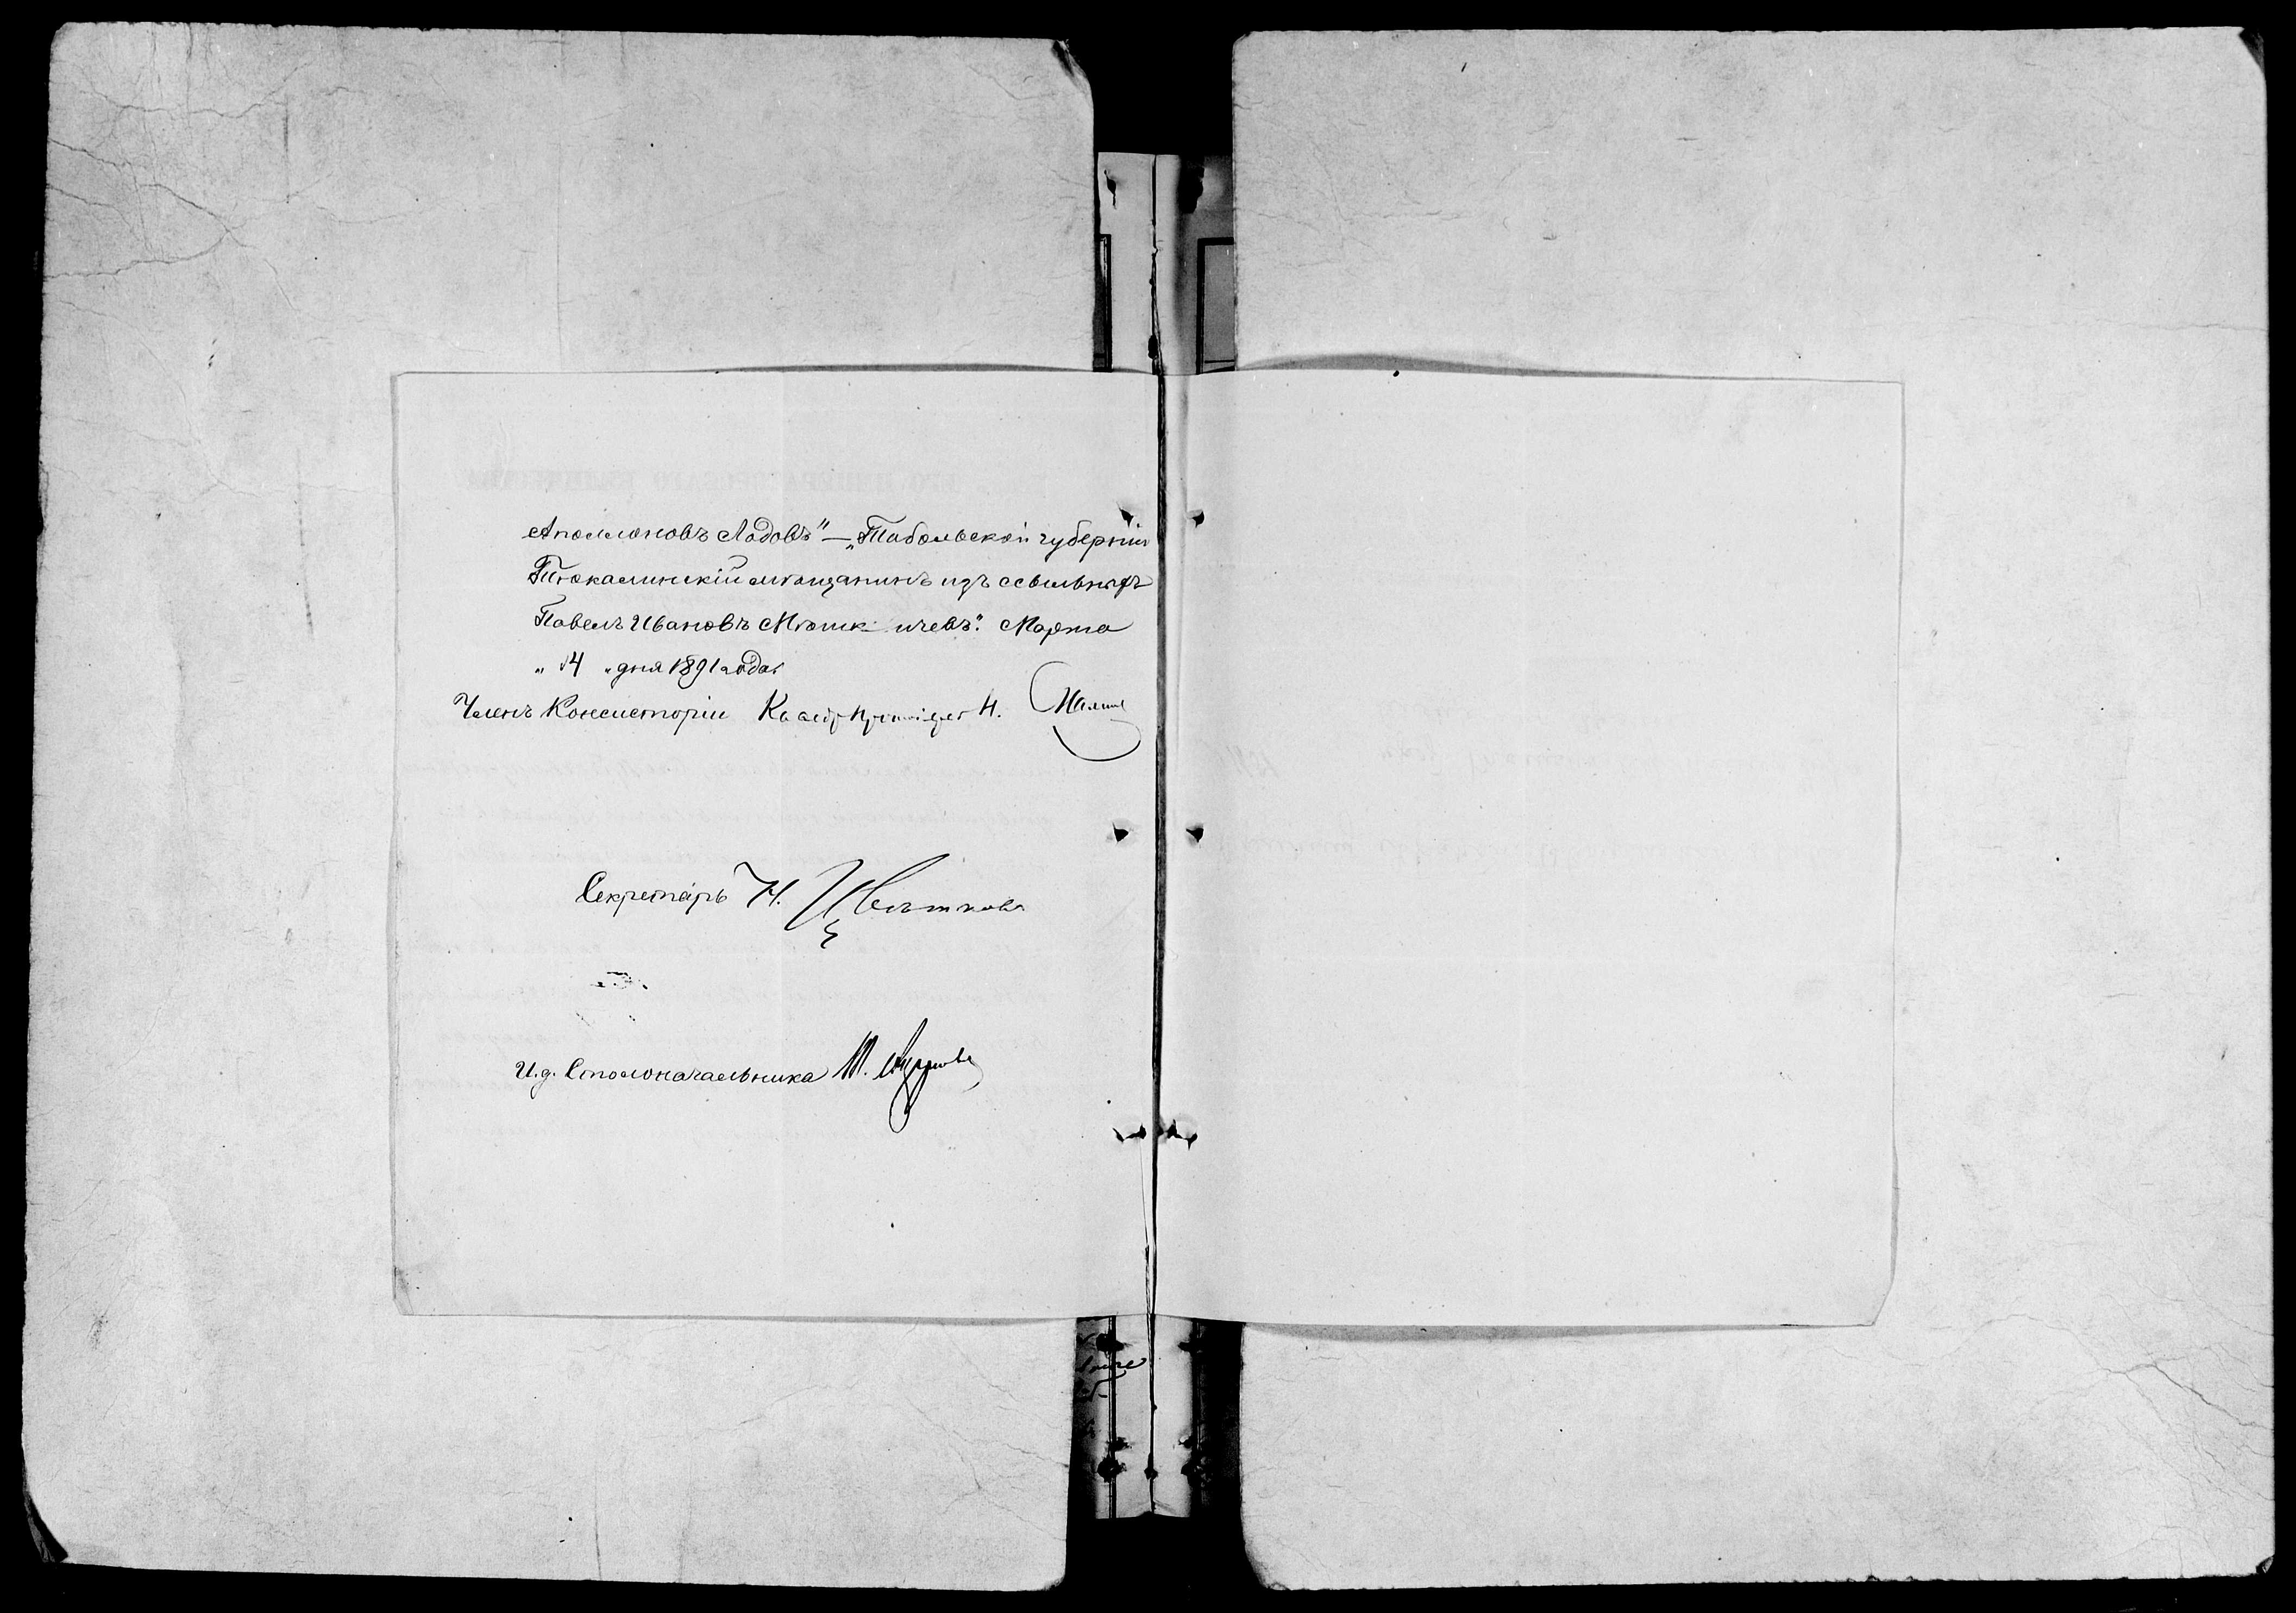 Аполлоновъ Ладовъ" — „Тобольской губерніи
Тюкалинскій мѣщанинъ изъ ссыльныхъ
Павелъ Ивановъ Марта
„ 14 „ дня 1891 года.
Членъ Консисторіи Н.
Секретарь Н. Цвѣтковъ
И. д. Столоначальника